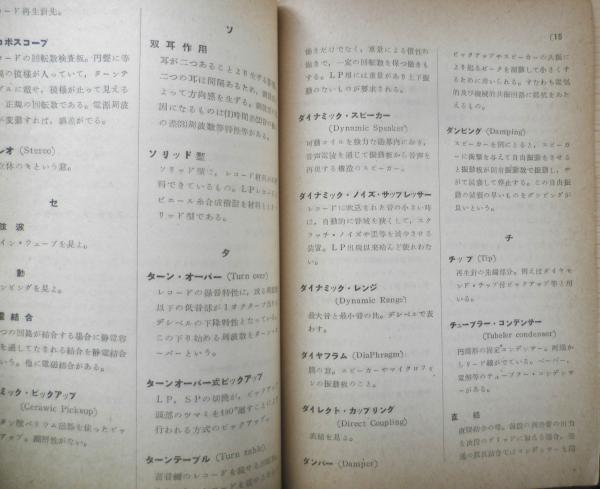 コード再生針先。
コボスコープ
コードの回転数検査板。円盤に等
の模様が入っていて、ターンテ
に載せ、模様が止って見える
正規の回転数である。電源周波
が変動すれば、誤差がでる。
レオ (Stereo)
立体のキという意。
セ
弦波
イン・ウェーブを見よ。
動
ンピングを見よ。
電結合
つの回路が結合する場合に静電容
を通してなされる結合を静電結合
いう。他に電磁結合がある。
ミック・ピックアップ
(Cerawic Pickeup)
タン酸バリウム磁器を使ったピッ
アップ。潮解性がない。
ソ
双耳作用
耳が二つあることより生ずる
二つの耳は間隔あるため、
よって方向感を生ずる。
因になるものは
の差 周波数等特性等がある。
ソリッド型
ソリッド型に、レコード材料が
料できているもの。LPレコード
ビニール系合成樹脂を材料とした
リッド型である。
タ
ターン・オーバー (Turn over)
レコードの録音特性に、或る周波
以下の低音部が1オクターブ当り
デシベルの下降特性となっている
この下り始める周波数をターン・オ
ーバーという。
ターンオーバー式ピックアップ
LP、SPの切換が、ピックアップ
頭部のツマミを180°廻すことにより
行われる方式のピックアップ。
ターンテーブル (Turn table)
のレコードを載せる回転
(15
働きだけでなく、重量による慣性の
働きで、一定の回転数を保つ働きも
する。LP用には重量があり上下振
動のないものが要求される。
ダイナミック・スピーカー
(Dynamic Speaker)
可動コイルを強力な磁界内におき、
音声電流を通じて振動板から音声を
再現する構造のスピーカー。
ダイナミック・ノイズ・サップレッサー
レコードに吹込まれた音の小さい時
は、自動的に音域を狭くして、スク
ラッチ・ノイズや雲等を減少させる
装置。LP出現以来殆んど使れわな
い。
ダイナミック・レンジ
(Dynamic Range)
最大音と最小音の比。デシベルで表
わす。
ダイヤフラム (DiaPhragm)
膜の意。スピーカーやマイクロフォ
ンの振動板のこと。
ダイレクト・カップリング
(Direct Coupling)
直結を見よ。
ダンパー (Damper)
ピックアップやスピーカーの共振に
より起るピークを制動して小さくす
るために用いられる。すなわち電気
的及び機械的共振回路に抵抗をあた
えるもの。
ダンピング (Damping)
スピーカーを例にとると、スピーカ
ーに衝撃を与えて自由振動をさせる
と振動板が固有振動数で振動し、や
がて減衰して停止する。この自由振
動の減衰の早いものをダンピングが
良いという。
チ
チップ (Tip)
再生針の先端部分。例えばダイヤモ
ンド・チップ付ピックアップ等と用
いる。
チューブラー・コンデンサー
(Tubeler condenser)
円筒形の固定コンデンサー。両端か
らリード線がでている。ペーパー、
電解等のチューブラー・コンデンサ
ーがある。
直結
直接結合の略。前段の真空管の出力
を次段のグリッドに加える場合、普
通の抵抗結合ではコンデンサーを間